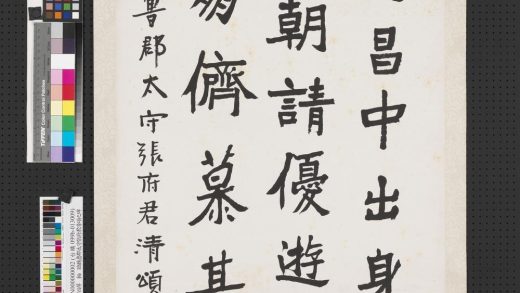 昌中出身
朝請優遊
儕慕其
魯郡太守張府君清頌
TIFFEN Color Control Patches